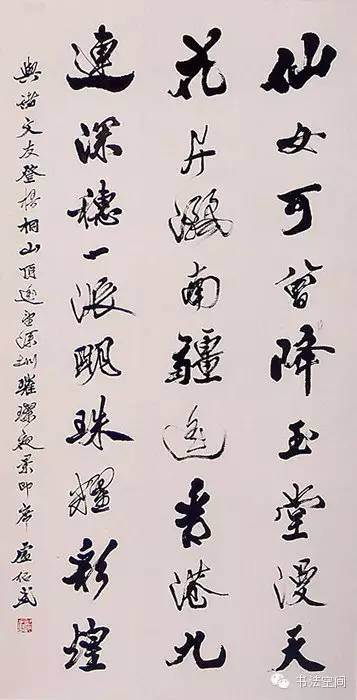 仙女可曾降玉堂漫天
花片濺南疆遙香港九
連深穗一派明珠耀彩煌
與諸文友登梧桐山頂遙望深圳璀璨夜景即席
书法空间